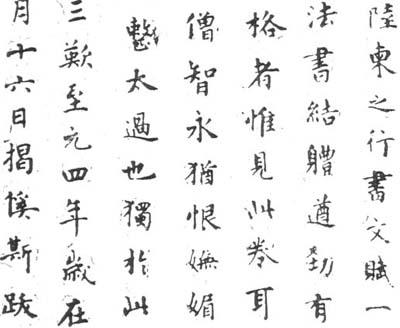 陸柬之行書文賦一
法書結體遒勁有
格者惟見此卷耳
僧智永猶恨嫵媚
整太過也獨於此
三歎至元四年歲在
月十六日揭傒斯跋